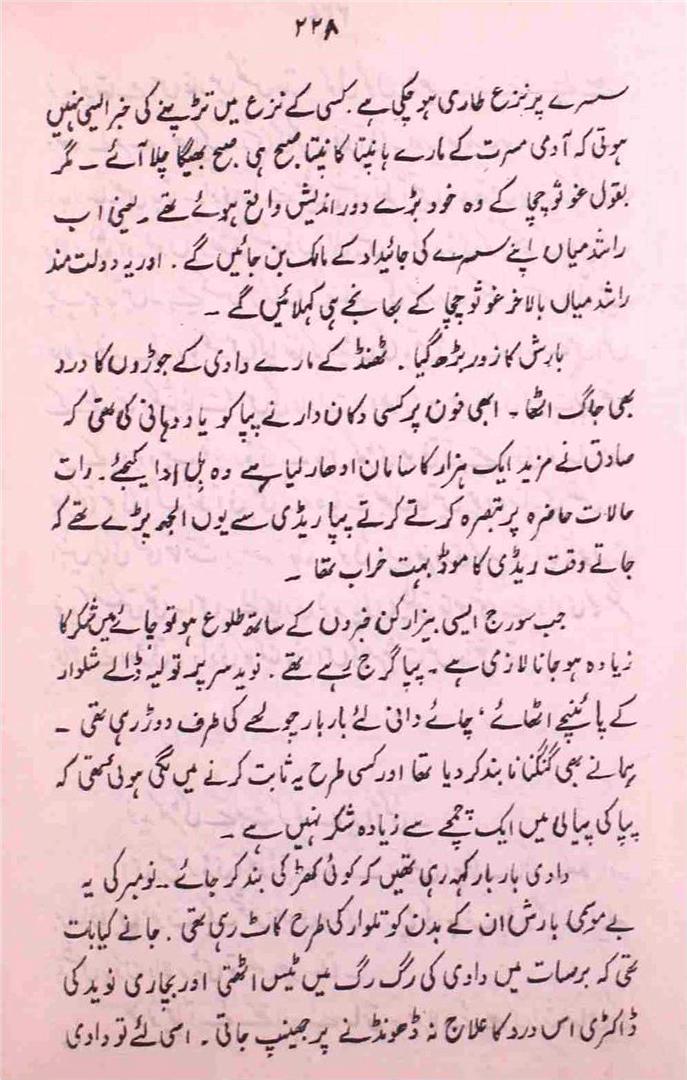 ۲۲۸
سسرے پر نزع طاری ہو چکی ہے۔ کسی کے نزع میں تڑپنے کی خبر ایسی نہیں
ہوتی کہ آدمی مسرت کے مارے ہانپتا کانپتا صبح ہی صبح بھیگا چلا آئے ۔ مگر
بقول غوثو چچا کے وہ خود بڑے دور اندیش واقع ہوئے تھے ۔ یعنی اب
راشد میاں اپنے سسرے کی جائیداد کے مالک بن جائیں گے ۔ اور یہ دولت مند
راشد میاں بالآخر غوثو چچا کے بھانجے ہی کہلائیں گے ۔
بارش کا زور بڑھ گیا ۔ ٹھنڈ کے مارے دادی کے جوڑوں کا درد
بھی جاگ اٹھا ۔ ابھی فون پر کسی دکان دار نے پپا کو یاد دہانی کی تھی کہ
صادق نے مزید ایک ہزار کا سامان ادھار لیا ہے وہ بل ادا کیجئے ۔ رات
حالات حاضرہ پر تبصرہ کرتے کرتے پپا ریڈی سے یوں الجھ پڑے تھے کہ
جاتے وقت ریڈی کا موڈ بہت خراب تھا ۔
جب سورج ایسی بیزار کن خبروں کے ساتھ طلوع ہو تو چائے میں شکر کا
زیادہ ہو جانا لازمی ہے ۔ پپا گرج رہے تھے ۔ نوید سر پر تولیہ ڈالے شلوار
کے پائینچے اٹھائے ، چائے دانی لئے بار بار چولھے کی طرف دوڑ رہی تھی ۔
ہما نے بھی گنگنانا بند کر دیا تھا اور کسی طرح یہ ثابت کرنے میں لگی ہوئی تھی کہ
پپا کی پیالی میں ایک چمچے سے زیادہ شکر نہیں ہے ۔
دادی بار بار کہہ رہی تھیں کہ کوئی کھڑکی بند کر جائے ۔ نومبر کی یہ
بے موسمی بارش ان کے بدن کو تلوار کی طرح کاٹ رہی تھی ۔ جانے کیا بات
تھی کہ برصات میں دادی کی رگ رگ میں ٹیس اٹھتی اور بچاری نوید کی
ڈاکٹری اس درد کا علاج نہ ڈھونڈنے پر جھینپ جاتی ۔ اسی لئے تو دادی